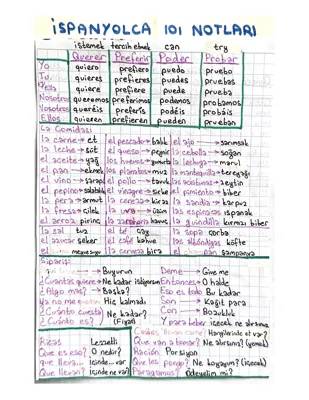 İSPANYOLCA 101 NOTLARI
istemek tercih etmek can try
Querer Preferir Poder Probar
Yo quiero prefiero puedo pruebo
Tu quieres prefieres puedes pruebas
El/Ella quiere prefiere puede prueba
Nosotros queremos preferimos podemos probamos
queréis preferís podéis probáis
Ellos quieren prefieren pueden prueban
La Comida:
la carne → et el pescado → balık el ajo → sarımsak
la leche → süt el queso → peynir la cebolla → soğan
el aceite → yağ los huevos → yumurta la lechuga → marul
el pan → ekmek los platanos → muz la mantequilla → tereyağı
el vino → şarap el pollo → tavuk las aceitunas → zeytin
el pepino → salatalık el vinagre → sirke el pimiento → biber
la pera → armut la cereza → kiraz la sandia → karpuz
la fresa → çilek la uva → üzüm las espinacas ıspanak
el arroz pirinç la zanahoria havuç la guindilla kırmızı biber
la sal tuz el té çay la sopa çorba
el azucar şeker el café kahve las albóndigas köfte
la cerveza bira şampanya
Sipariş:
→ Buyurun Deme → Give me
¿Cuántas quiere → Ne kadar istiyorsun Entonces → O halde
¿Algo más? → Başka? Eso es todo Bu kadar
Ya no me queda Hiç kalmadı Son → Kağıt para
¿Cuánto cuesta Ne kadar? Con → Bozukluk
¿Cuánto es? (Fiyat) Y para beber içecek ne alırsınız
Hangilerinde et var?
Ricas Lezzetli Que van a tomar? Ne alırsınız? (yemek)
Que es eso? O nedir? Ración Porsiyon
que lleva... İçinde ne var? Que les pongo? Ne koyayım? (içecek)
Que llevan? içinde ne var? Pagamos? Ödeyelim mi?